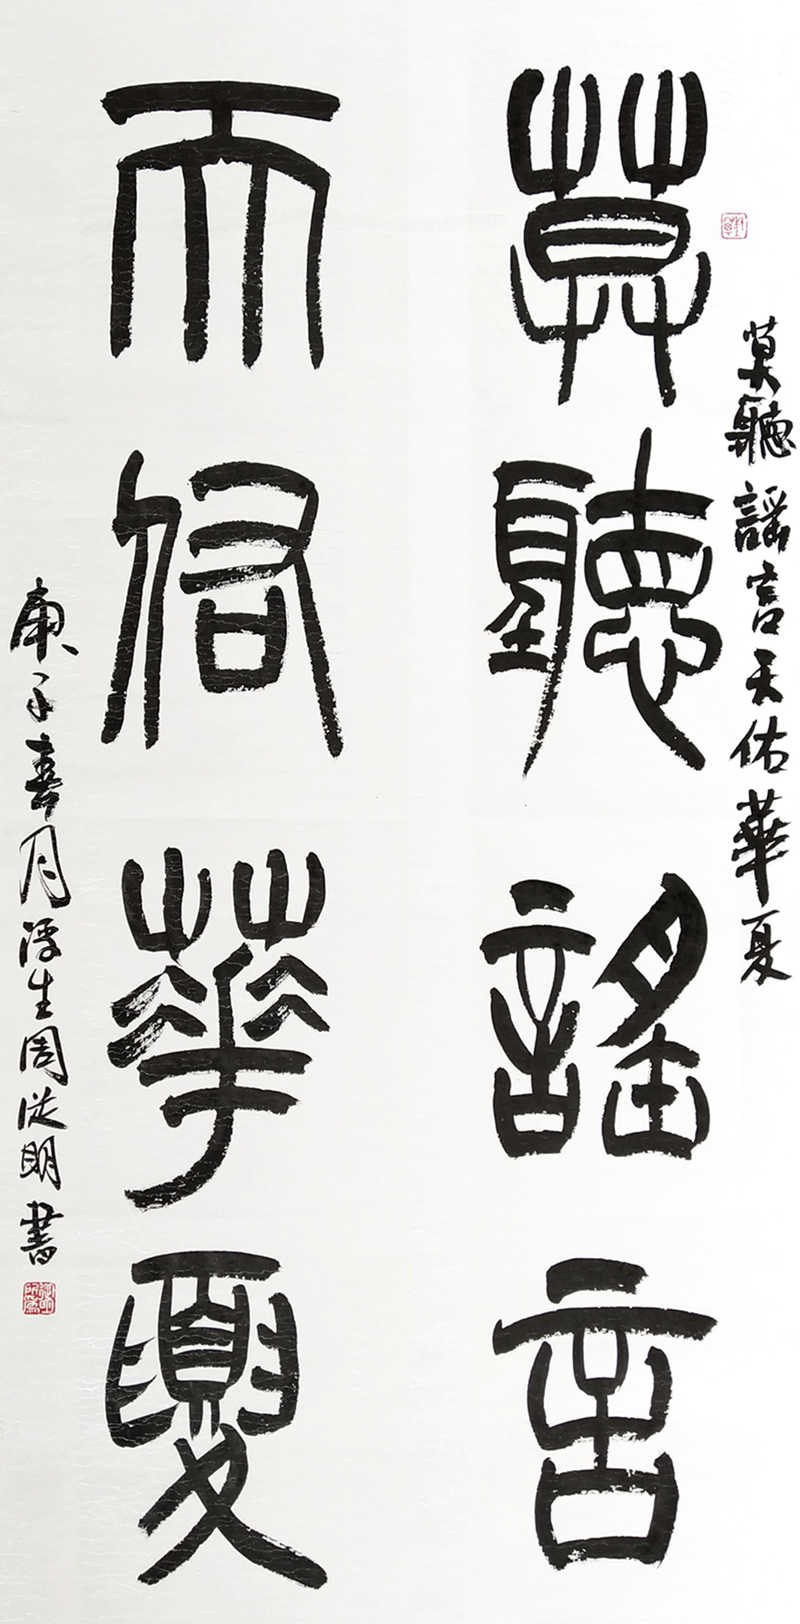 莫聽謡言天佑華夏
莫聽謠言
天佑華夏
庚子春月浮生周從明書